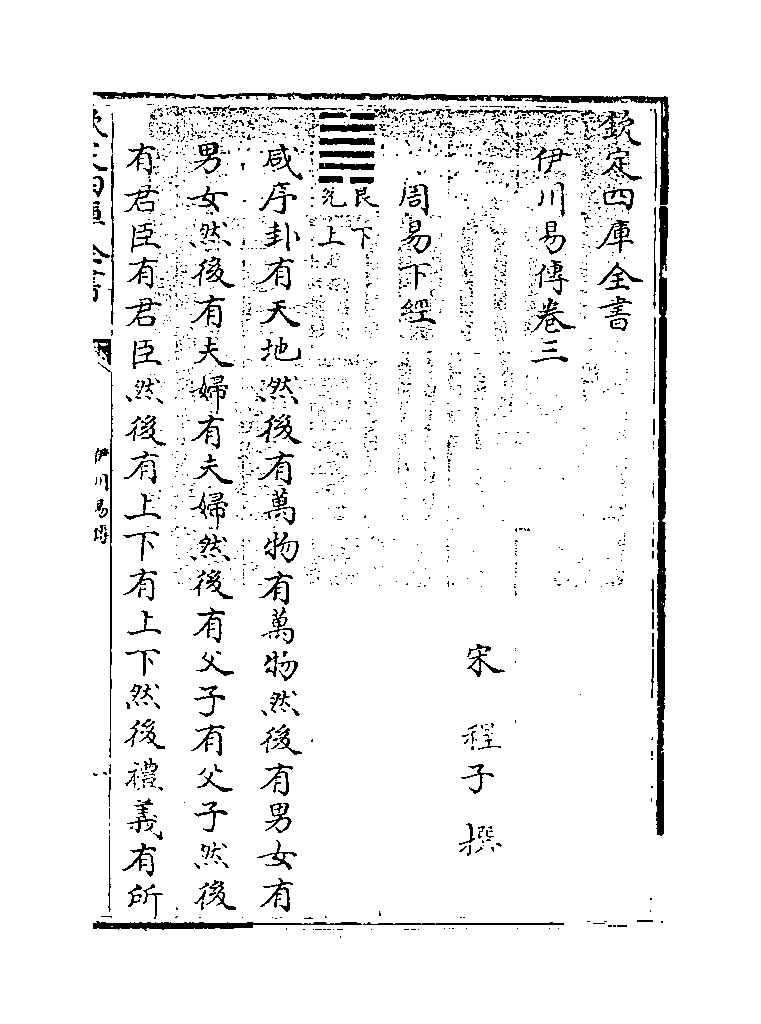 欽定四庫全書
伊川易傳卷三
宋 程子 撰
周易下經
䷞艮下
兌上
咸序卦有天地然後有萬物有萬物然後有男女有
男女然後有夫婦有夫婦然後有父子有父子然後
有君臣有君臣然後有上下有上下然後禮義有所
欽定四庫全書
伊川易傳